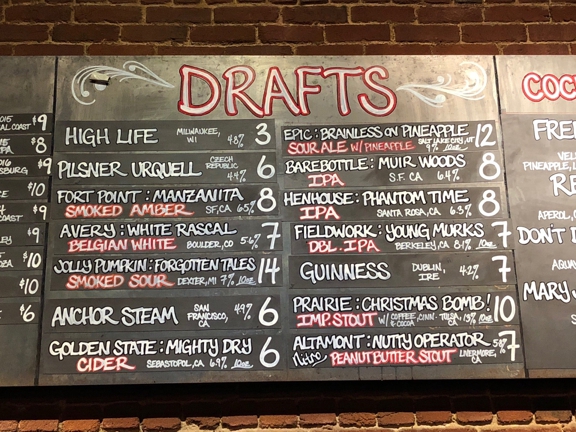 DRAFTS
HIGH LIFE MILWAUKEE, WI 4.8% 3
PILSNER URQUELL CZECH REPUBLIC 4.4% 6
FORT POINT : MANZANITA 8
SMOKED AMBER SF, CA 6.5%
AVERY : WHITE RASCAL 7
BELGIAN WHITE BOULDER, CO 5.6%
JOLLY PUMPKIN : FORGOTTEN TALES 14
SMOKED SOUR DEXTER, MI 7% 10oz
ANCHOR STEAM SAN FRANCISCO, CA 4.9% 6
GOLDEN STATE : MIGHTY DRY 6
CIDER SEBASTOPOL, CA 6.9% 10oz
EPIC : BRAINLESS ON PINEAPPLE 12
SOUR ALE W/ PINEAPPLE SALT LAKE CITY, UT 9% 10oz
BAREBOTTLE : MUIR WOODS 8
IPA S.F. CA 6.4%
HENHOUSE : PHANTOM TIME 8
IPA SANTA ROSA, CA 6.3%
FIELDWORK : YOUNG MURKS 7
DBL. IPA BERKELEY, CA 8.1% 10oz
GUINNESS DUBLIN, IRE 4.2% 7
PRAIRIE : CHRISTMAS BOMB! 10
IMP. STOUT W/ COFFEE, CINN. & COCOA TULSA, OK 13% 10oz
ALTAMONT : NUTTY OPERATOR 7
Nitro PEANUT BUTTER STOUT LIVERMORE, CA
$9
$8
$9
$10
$9
$9
$10
$10
$6
COCK
FRE
PINEAPPLE, L
RE
APEROL, C
DON'T D
MARY J